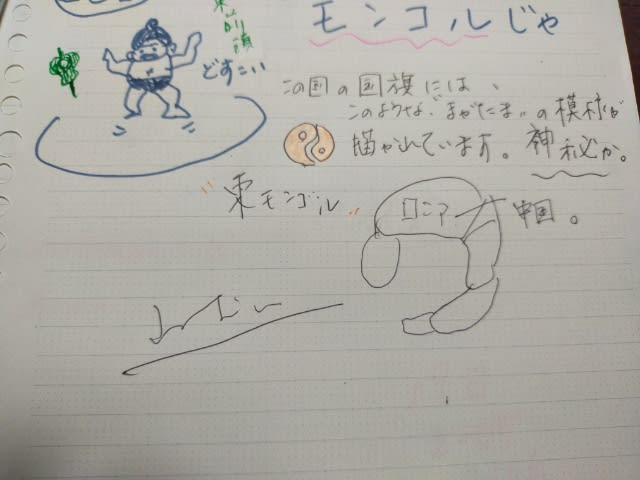 モンゴルじゃ
東前頭
どすこい
この国の国旗には、
このような“まがたま”の模様が
描かれています。神秘か。
"東モンゴル"
ロシア
中国。